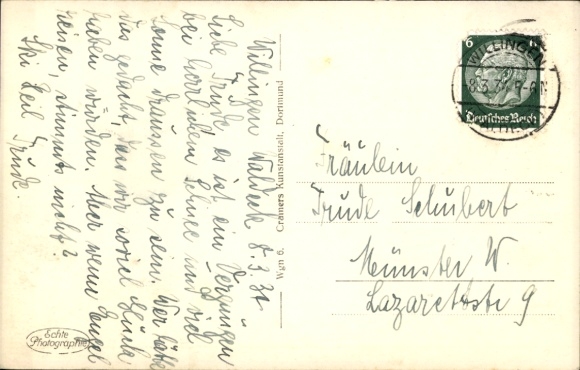 Willingen Waldeck 8.3.37
Liebe Trude, es ist ein Vergnügen
bei herrlichem Schnee und viel
Sonne draussen zu sein. Wer hätte
das gedacht, dass wir soviel Glück
haben würden. Aber wenn Engel
reisen, stimmts nicht?
Ski Heil Trude.
Echte
Photographie
Wgn 6. Cramers Kunstanstalt, Dortmund
6
WILLINGEN
8.3.37
Deutsches Reich
Fräulein
Trude Schubert
Münster W.
Lazarettstr 9